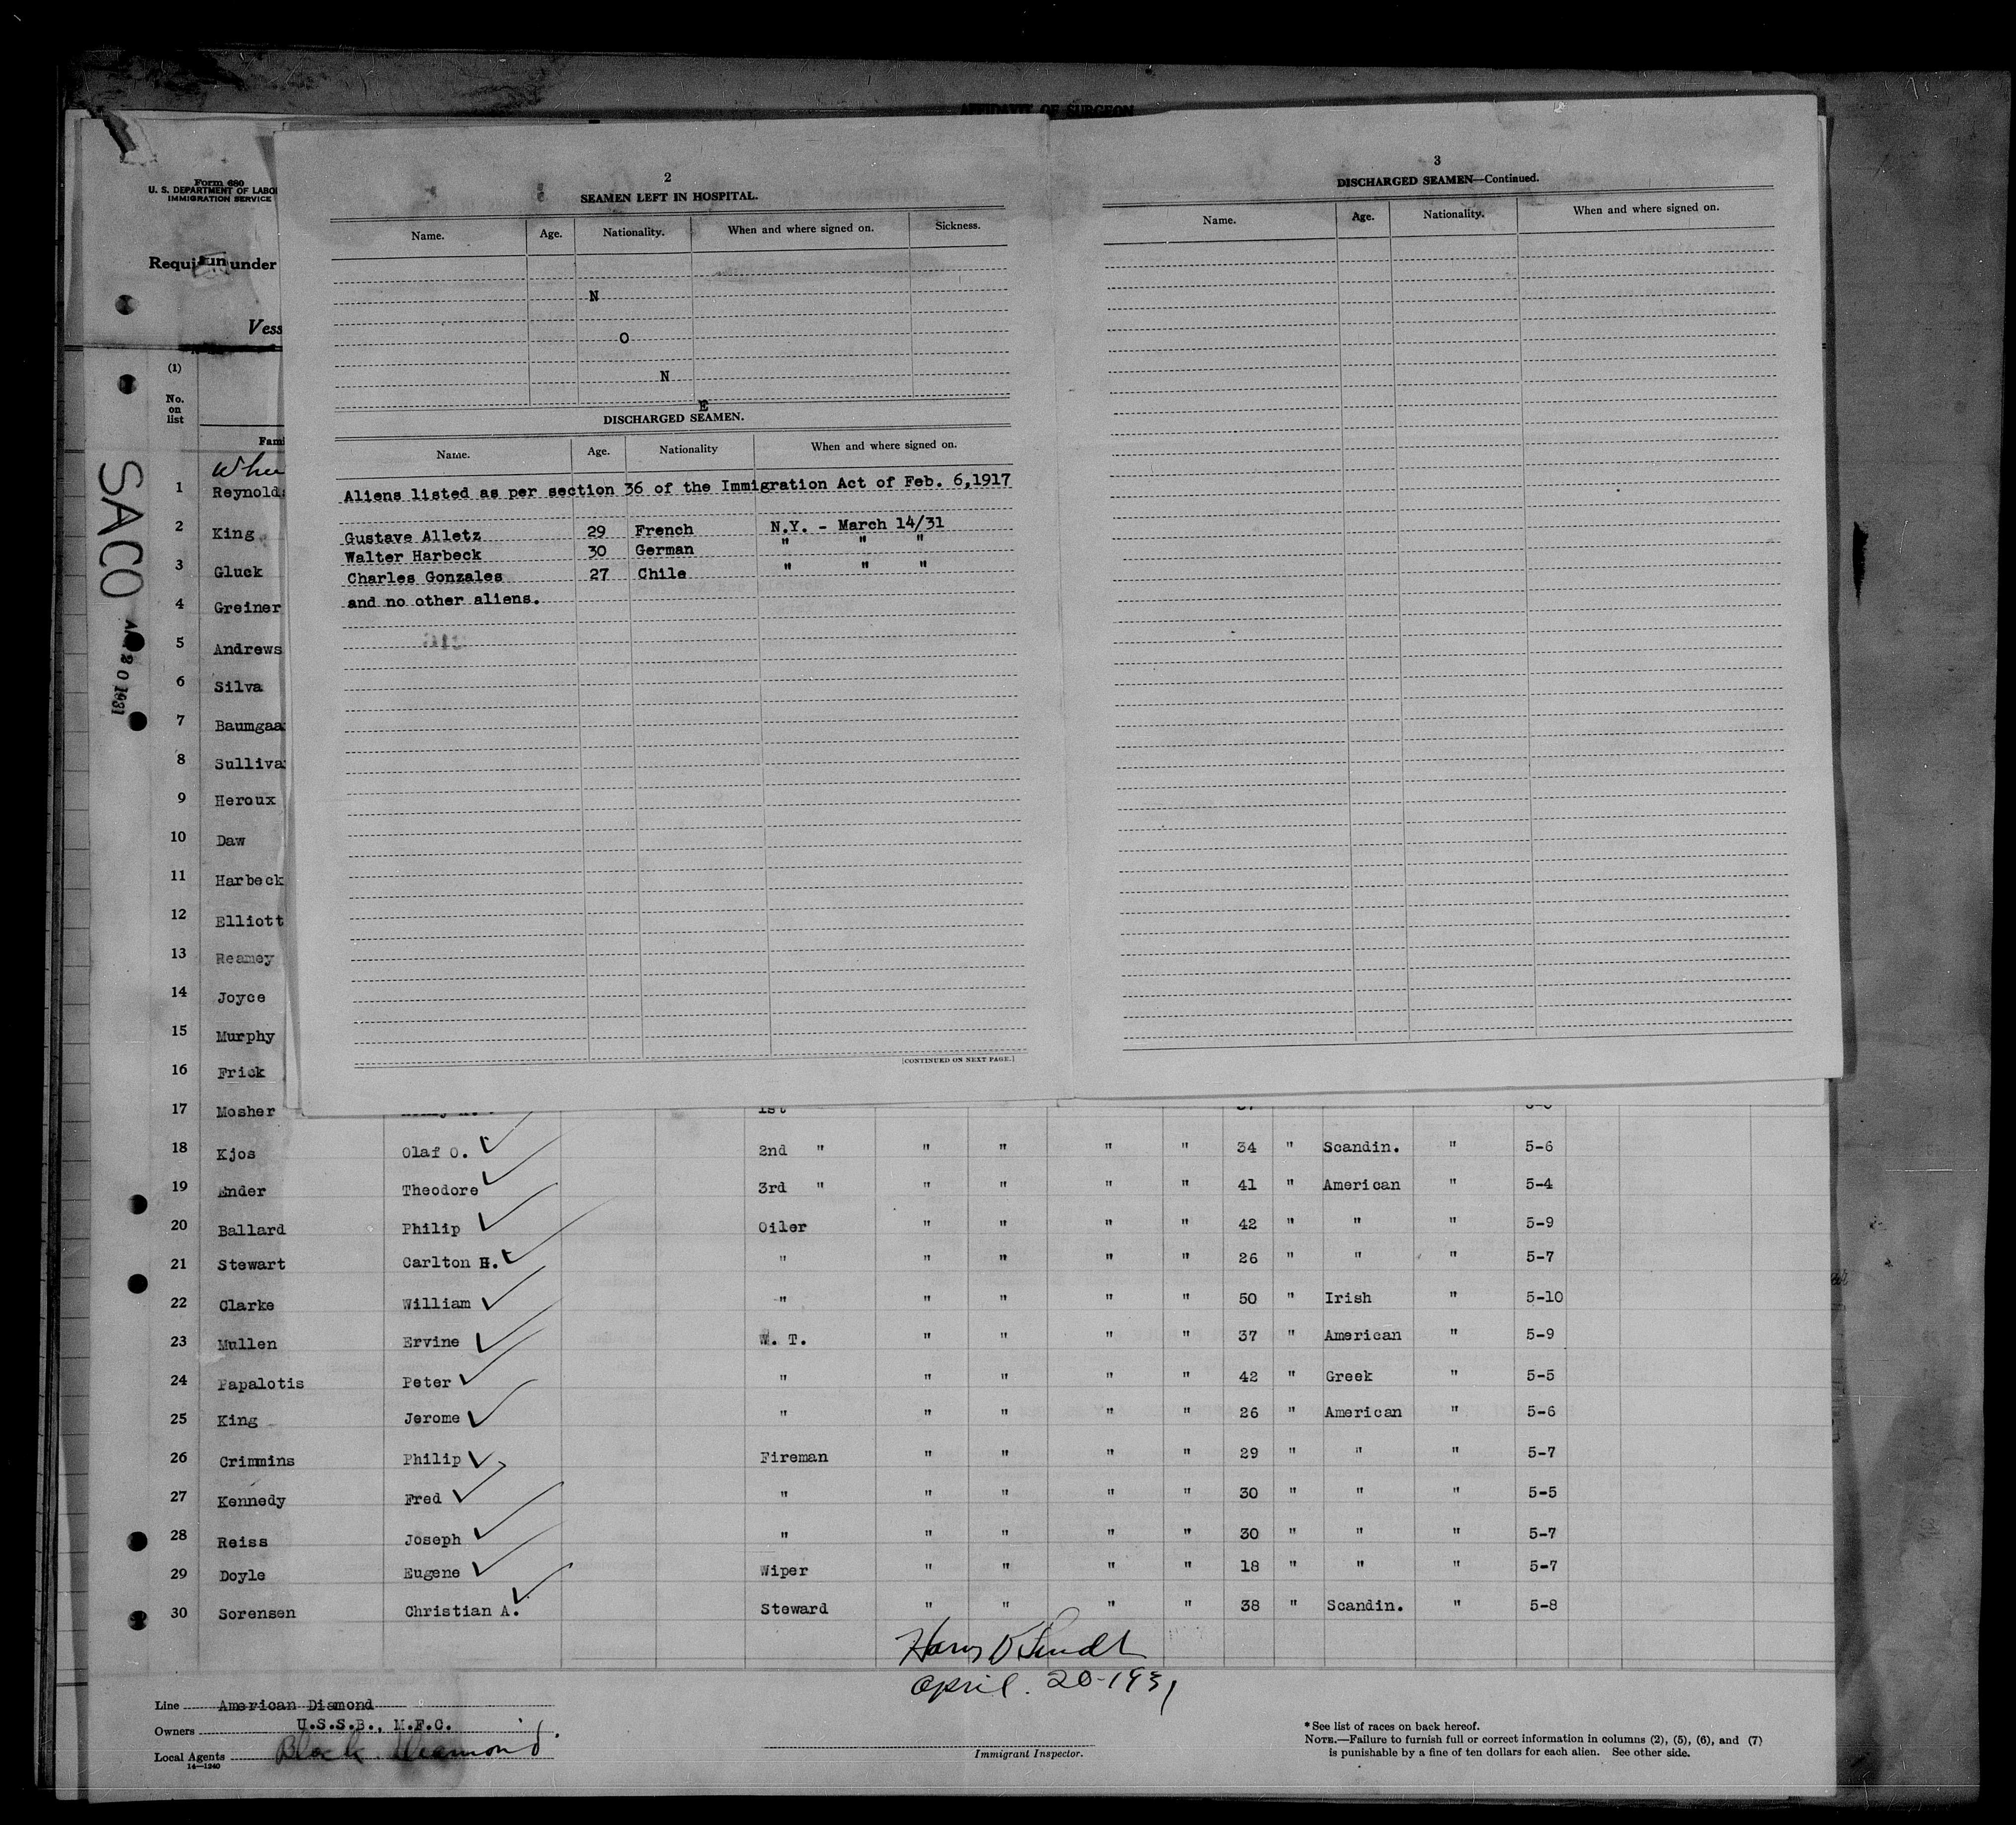 AFFIDAVIT OF SURGEON
Form 680
U. S. DEPARTMENT OF LABO
IMMIGRATION SERVICE
under
Vess
(1)
No.
on
list
Fami
SACO
20 1931
2
SEAMEN LEFT IN HOSPITAL.
Name. Age. Nationality. When and where signed on. Sickness.
N
O
N
E
DISCHARGED SEAMEN.
Name. Age. Nationality When and where signed on.
Aliens listed as per section 36 of the Immigration Act of Feb. 6,1917
Gustave Alletz 29 French N.Y. - March 14/31
Walter Harbeck 30 German " " "
Charles Gonzales 27 Chile " " "
and no other aliens.
[CONTINUED ON NEXT PAGE.]
3
DISCHARGED SEAMEN—Continued.
Name. Age. Nationality. When and where signed on.
1 Reynolds
2 King
3 Gluck
4 Greiner
5 Andrews
6 Silva
7 Baumgaa
8 Sulliva
9 Heroux
10 Daw
11 Harbeck
12 Elliott
13 Reamey
14 Joyce
15 Murphy
16 Frick
17 Mosher 1st
18 Kjos Olaf O. 2nd " " " " " 34 " Scandin. " 5-6
19 Ender Theodore 3rd " " " " " 41 " American " 5-4
20 Ballard Philip Oiler " " " " 42 " " " 5-9
21 Stewart Carlton H. " " " " " 26 " " " 5-7
22 Clarke William " " " " " 50 " Irish " 5-10
23 Mullen Ervine W. T. " " " " 37 " American " 5-9
24 Papalotis Peter " " " " " 42 " Greek " 5-5
25 King Jerome " " " " " 26 " American " 5-6
26 Crimmins Philip Fireman " " " " 29 " " " 5-7
27 Kennedy Fred " " " " " 30 " " " 5-5
28 Reiss Joseph " " " " " 30 " " " 5-7
29 Doyle Eugene Wiper " " " " 18 " " " 5-7
30 Sorensen Christian A. Steward " " " " 38 " Scandin. " 5-8
April. 20-1931
Line American Diamond
Owners U.S.S.B., M.F.C.
Local Agents Black Diamond
14—1240
Immigrant Inspector.
* See list of races on back hereof.
NOTE.—Failure to furnish full or correct information in columns (2), (5), (6), and (7)
is punishable by a fine of ten dollars for each alien. See other side.